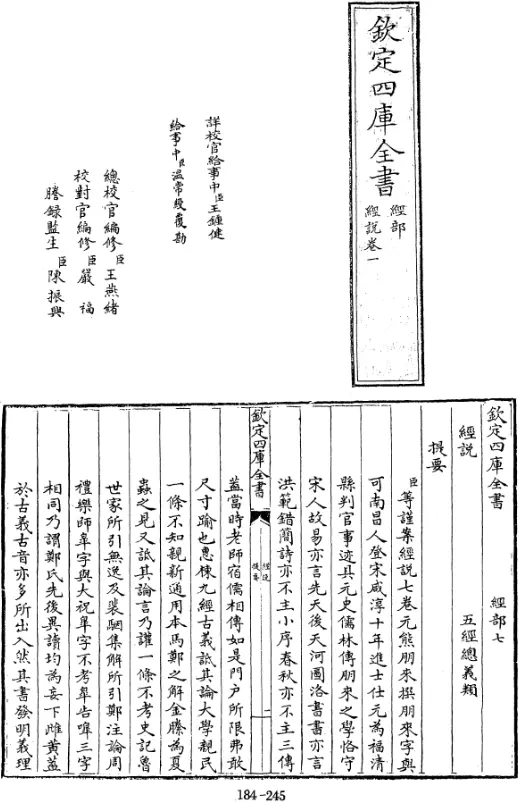 欽定四庫全書
經部
經說卷一
詳校官給事中臣王鍾健
給事中臣溫常綬覆勘
總校官編修臣王燕緒
校對官編修臣嚴福
謄錄監生臣陳振興
欽定四庫全書
經部七
經說
五經總義類
提要
臣等謹案經說七卷元熊朋來撰朋來字與
可南昌人登宋咸淳十年進士仕元為福清
縣判官事迹具元史儒林傳朋來之學恪守
宋人故易亦言先天後天河圖洛書書亦言
洪範錯簡詩亦不主小序春秋亦不主三傳
欽定四庫全書
經說
提要
一
蓋當時老師宿儒相傳如是門户所限弗敢
尺寸踰也惠棟九經古義詆其論大學親民
一條不知親新通用本馬鄭之解金縢為夏
蟲之見又詆其論言乃讙一條不考史記魯
世家所引無逸及裴駰集解所引鄭注論周
禮樂師臯字與大祝臯字不考臯告嘷三字
相同乃謂鄭氏先後異讀均為妄下雌黄蓋
於古義古音亦多所出入然其書發明義理
184-245